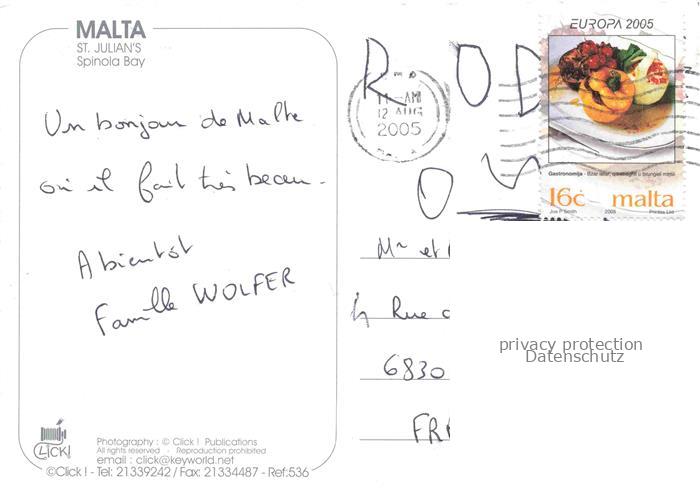 MALTA
ST. JULIAN'S
Spinola Bay
Un bonjour de Malte
où il fait très beau.
A bientôt
Famille WOLFER
Photography : © Click ! Publications
All rights reserved - Reproduction prohibited
email : click@keyworld.net
CLICK!
©Click ! - Tel: 21339242 / Fax: 21334487 - Ref:536
R O D
O S
11 - AM
12 AUG
2005
EUROPA 2005
Gastronomija -
16c malta
2005 Printex Ltd
Mr et
4 Rue
6830
FR
privacy protection
Datenschutz